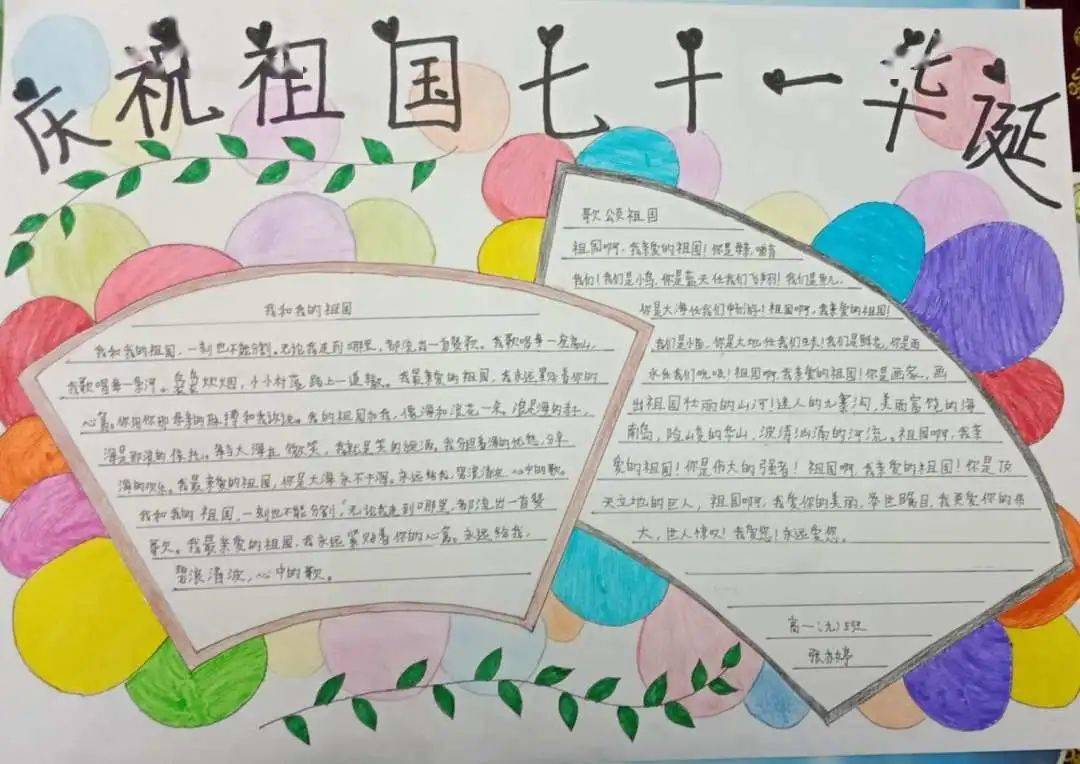 庆祝祖国七十一华诞
我和我的祖国
我和我的祖国,一刻也不能分割。无论我走到哪里,都流出一首赞歌。我歌唱每一座高山,
我歌唱每一条河。袅袅炊烟,小小村落,路上一道辙。我最亲爱的祖国,我永远紧贴着你的
心窝。你用你那母亲的脉搏和我诉说。我的祖国和我,像海和浪花一朵。浪是海的赤子,
海是那浪的依托。每当大海在微笑,我就是笑的旋涡。我分担着海的忧愁,分享
海的欢乐。我最亲爱的祖国,你是大海永不干涸。永远给我,碧浪清波,心中的歌。
我和我的祖国,一刻也不能分割,无论我走到哪里,都流出一首赞
歌。我最亲爱的祖国,我永远紧贴着你的心窝。永远给我,
碧浪清波,心中的歌。
歌颂祖国
祖国啊,我亲爱的祖国!你是母亲,哺育
我们!我们是小鸟,你是蓝天任我们飞翔!我们是鱼儿,
你是大海任我们畅游!祖国啊,我亲爱的祖国!
我们是小苗,你是大地任我们生长!我们是鲜花,你是雨
水任我们吮吸!祖国啊,我亲爱的祖国!你是画笔,画
出祖国壮丽的山河!迷人的九寨沟,美丽富饶的海
南岛,险峻的华山,波涛汹涌的河流。祖国啊,我亲
爱的祖国!你是伟大的强者!祖国啊,我亲爱的祖国!你是顶
天立地的巨人,祖国啊,我爱你的美丽,举世瞩目,我更爱你的伟
大,世人惊叹!我爱您!永远爱您。
高一(九)班
张亦婷